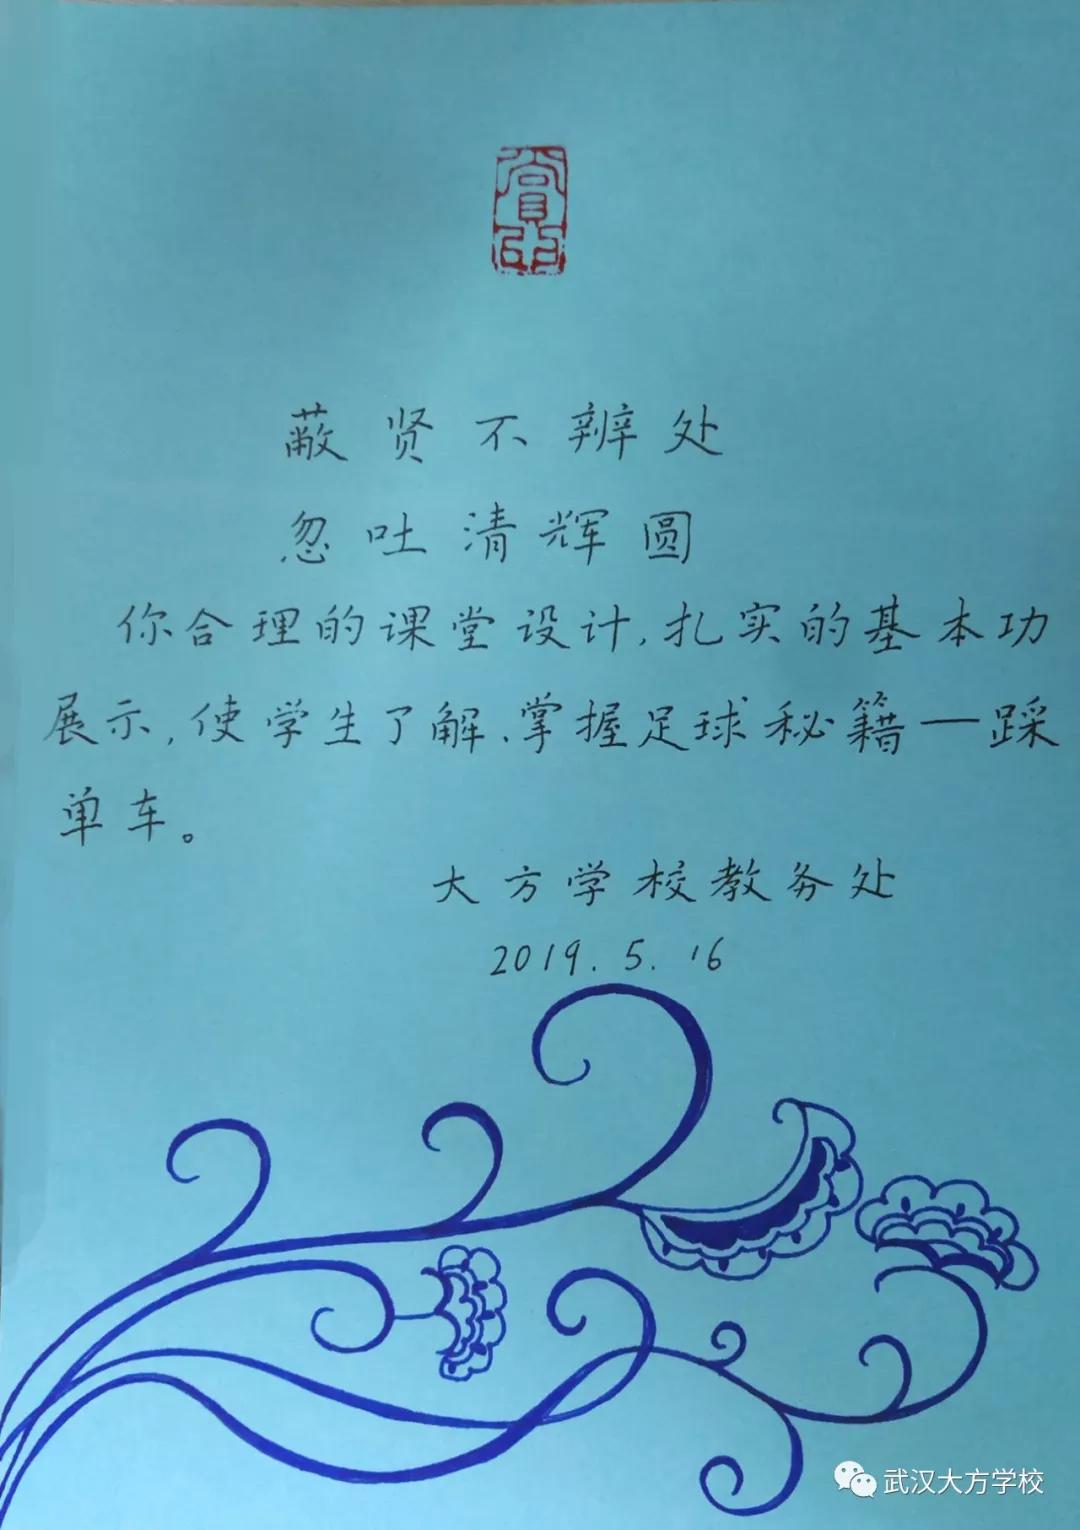 蔽贤不辨处
忽吐清辉圆
你合理的课堂设计,扎实的基本功
展示,使学生了解、掌握足球秘籍一踩
单车。
大方学校教务处
2019.5.16
武汉大方学校